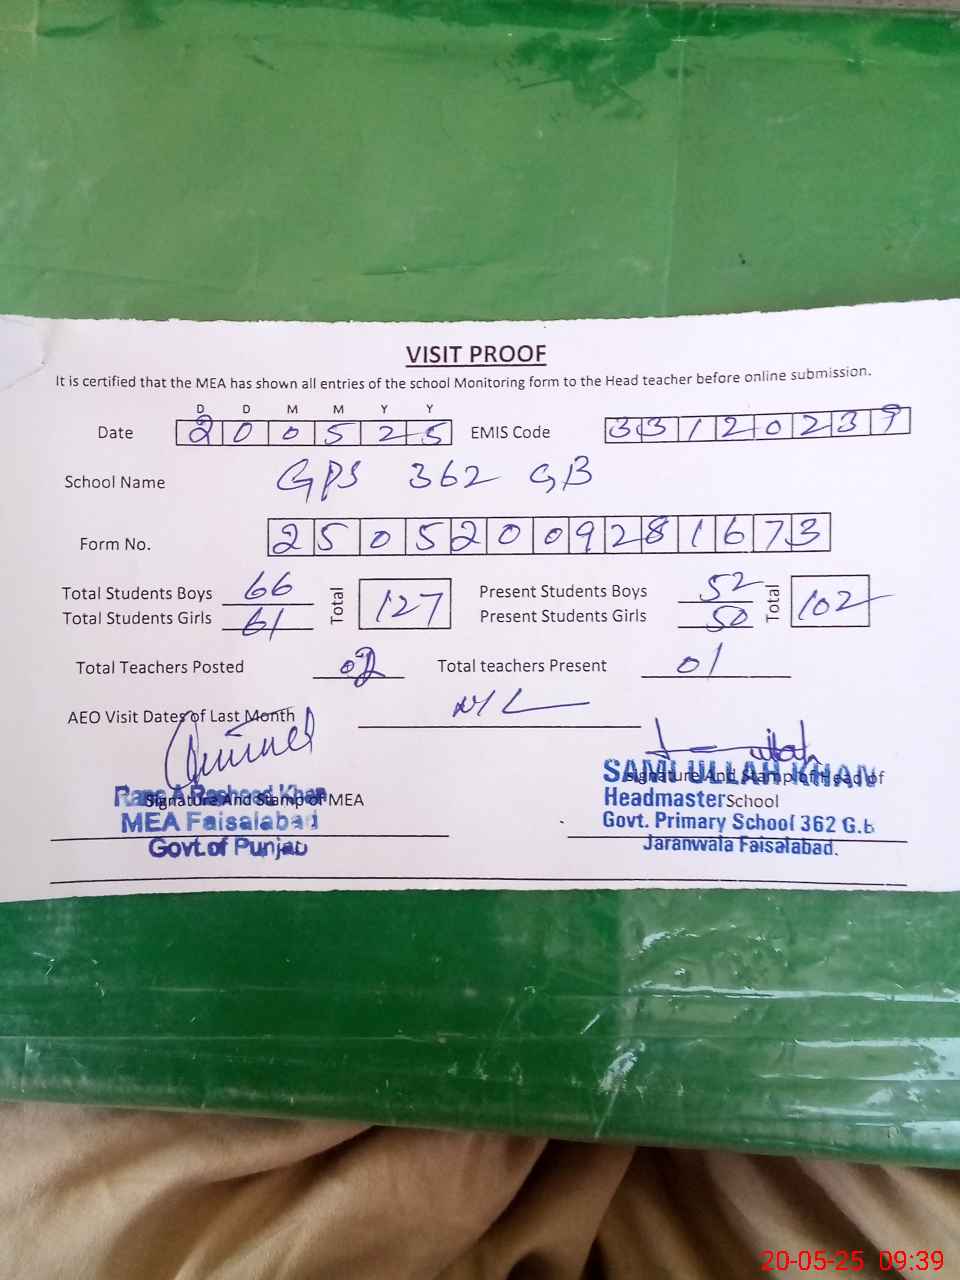 VISIT PROOF
It is certified that the MEA has shown all entries of the school Monitoring form to the Head teacher before online submission.
D D M M Y Y
Date 2 0 0 5 2 5 EMIS Code 3 3 1 2 0 2 3 9
School Name GPS 362 GB
Form No. 2 5 0 5 2 0 0 9 2 8 1 6 7 3
Total Students Boys 66 Total 127 Present Students Boys 52 Total 102
Total Students Girls 61 Present Students Girls 50
Total Teachers Posted 02 Total teachers Present 01
AEO Visit Dates of Last Month NIL
SAMI ULLAH KHAN
Signature And Stamp of Head of
Rana A Rasheed Khan
Signature And Stamp of MEA
Headmaster School
MEA Faisalabad
Govt. Primary School 362 G.b
Govt.of Punjab
Jaranwala Faisalabad.
20-05-25 09:39